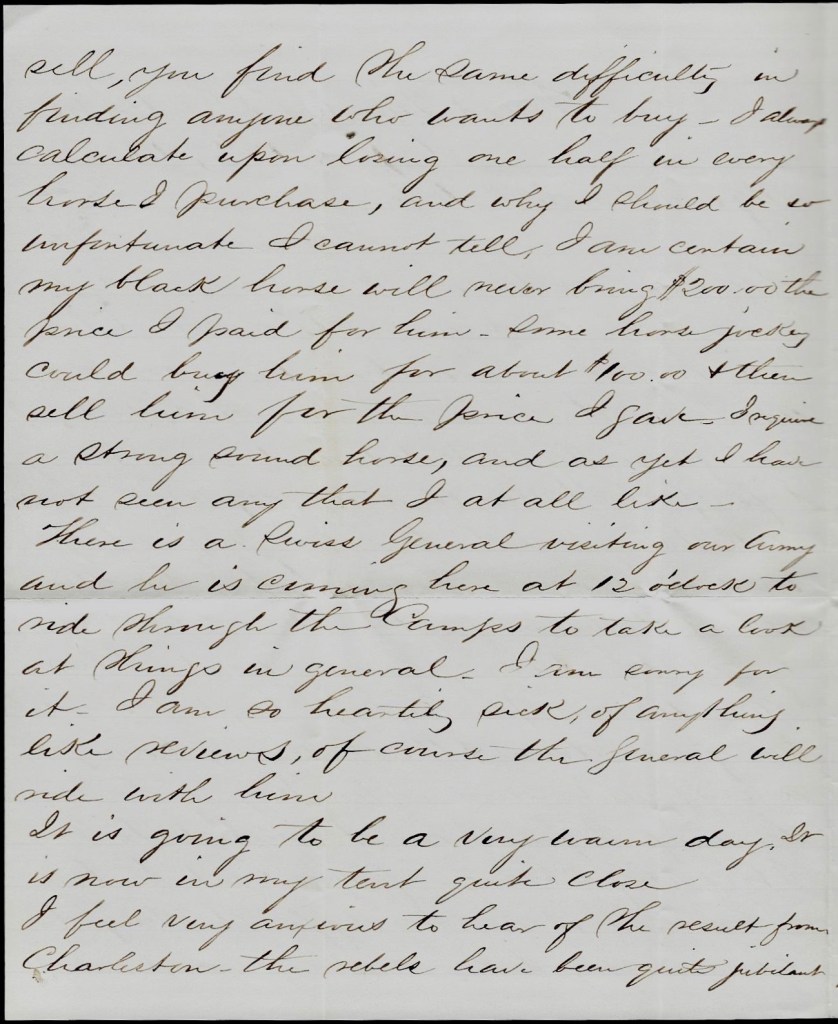 sell, you find the same difficulty in
finding anyone who wants to buy - I always
calculate upon losing one half in every
horse I purchase, and why I should be so
unfortunate I cannot tell, I am certain
my black horse will never bring $200.00 the
price I paid for him - some horse jockey
could buy him for about $100.00 & then
sell him for the price I gave - I require
a strong sound horse, and as yet I have
not seen any that I at all like -
There is a Swiss General visiting our Army
and he is coming here at 12 o'clock to
ride through the Camps to take a look
at things in general - I am sorry for
it - I am so heartily sick, of anything
like reviews, of course the General will
ride with him
It is going to be a very warm day. It
is now in my tent quite close
I feel very anxious to hear of the result from
Charleston - the rebels have been quite jubilant